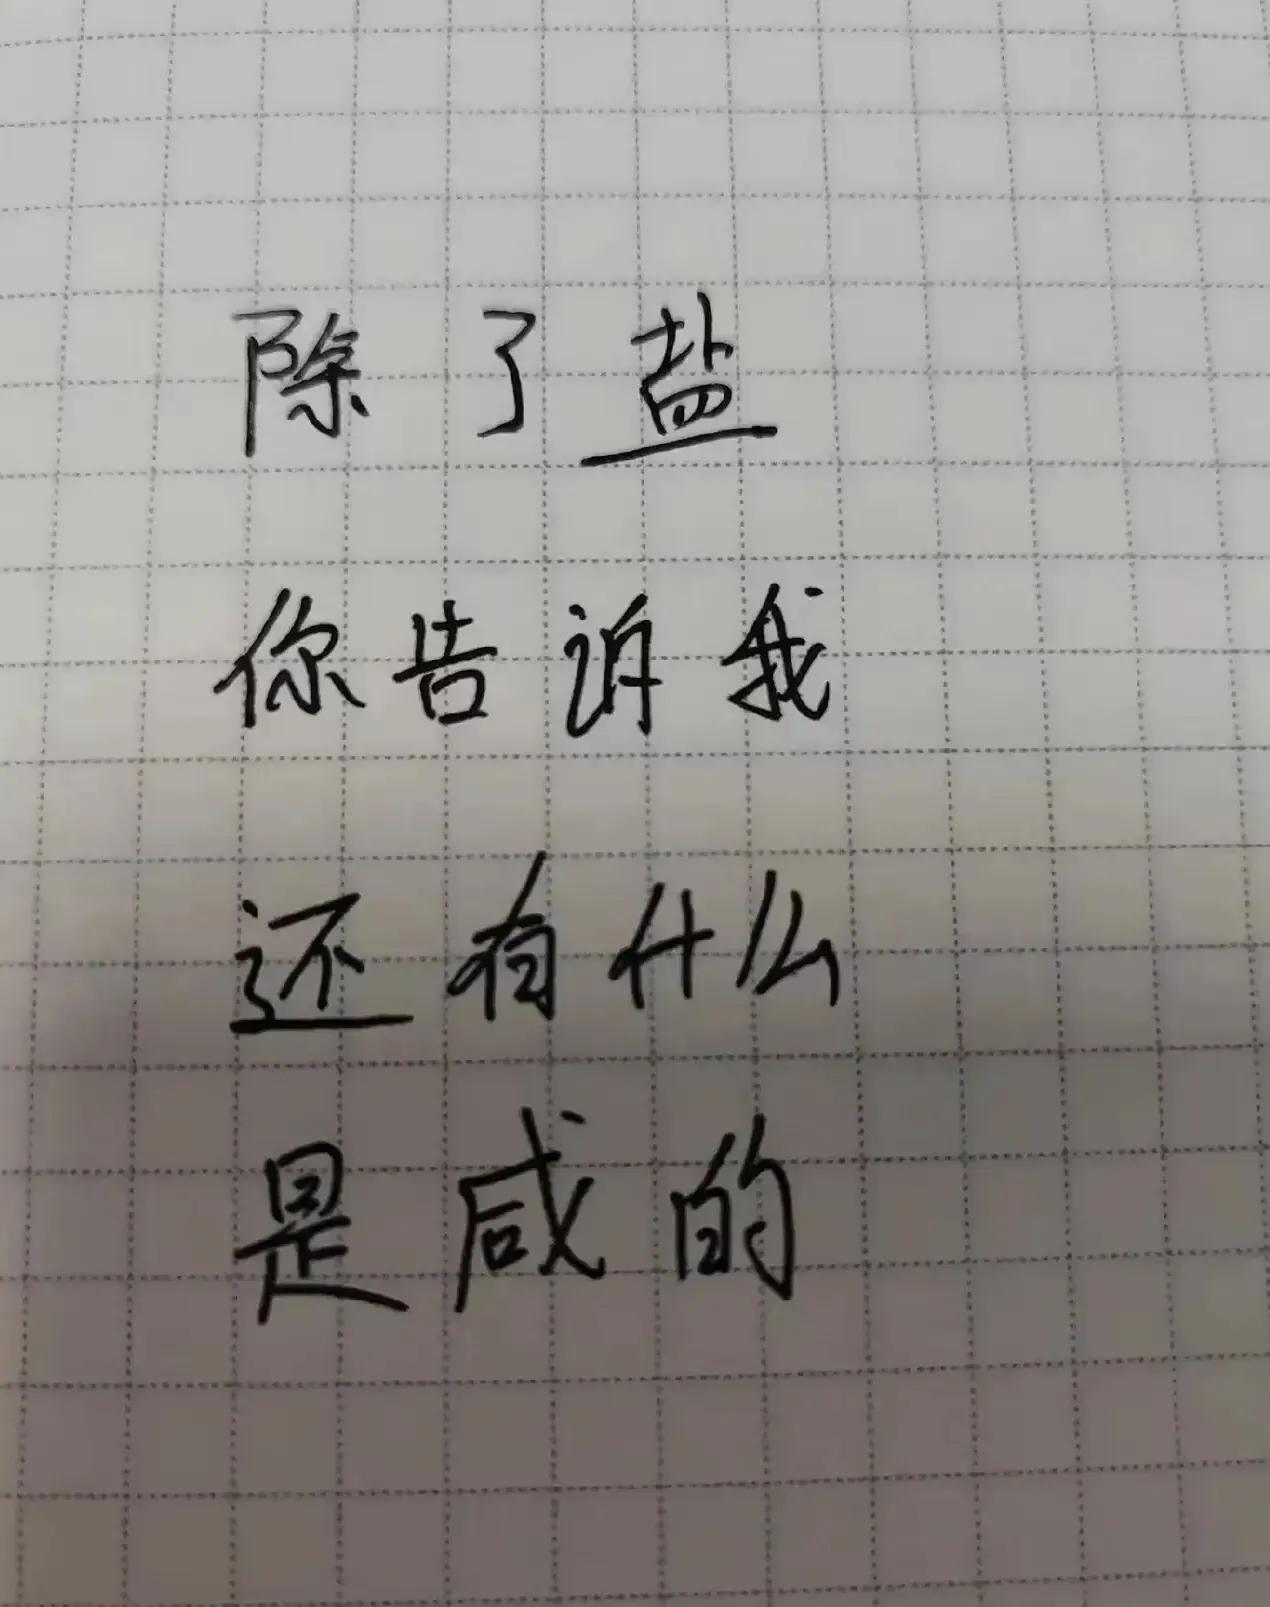 除了盐
你告诉我
还有什么
是咸的